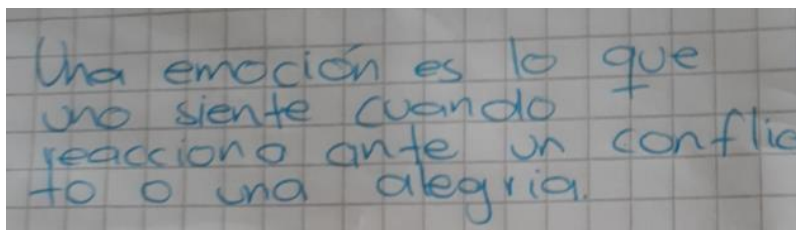 Una emoción es lo que
uno siente cuando
reacciono ante un conflic
to o una alegria.